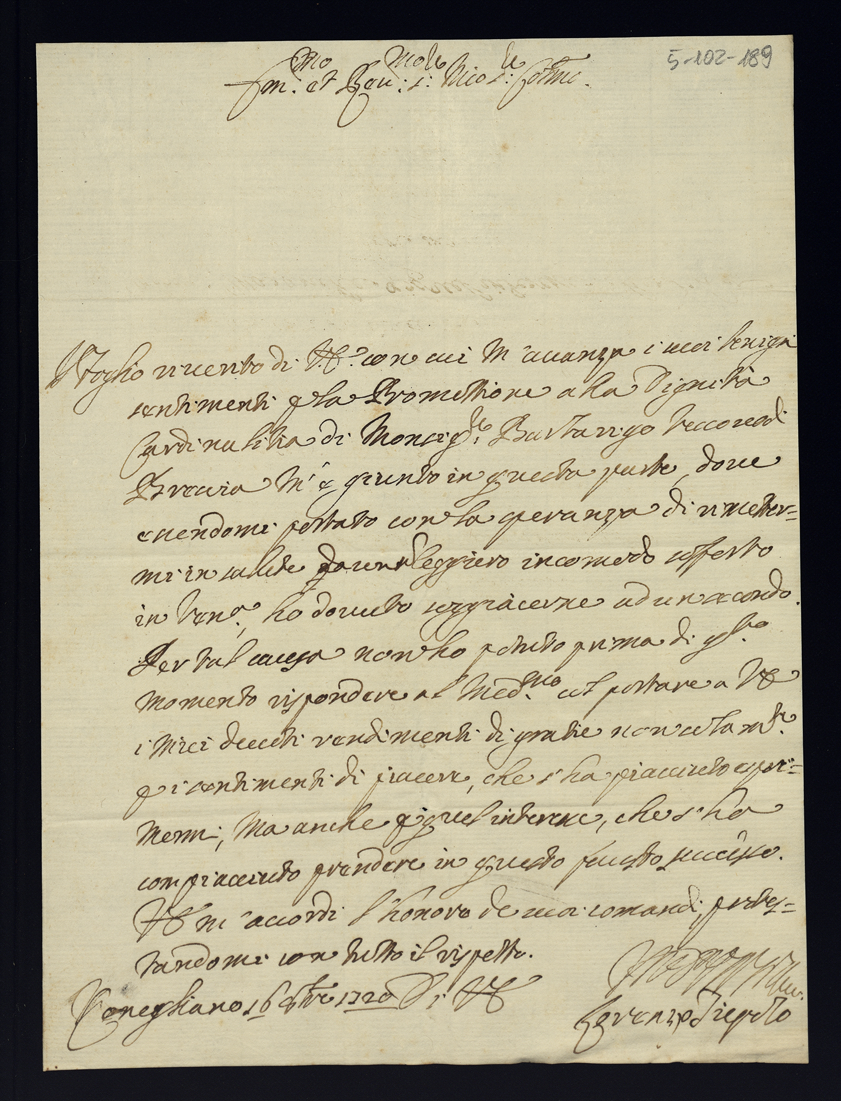 5-102-189
Foglio riverito di V.E. con cui m'avanza i suoi benigni
sentimenti p la Promottione alla Dignità
Cardinalitia di Monsig.r Barbarigo Vescovo di
Brescia m'è giunto in questa parte, dove
essendomi portato con la speranza di rimetter=
mi in salute da un leggiero incomodo sofferto
in Ven.a, ho dovuto soggiacerne ad un secondo.
Per tal causa non ho potuto prima di q.sto
momento rispondere al med.mo col portare a VE
i miei devoti rendimenti di gratie non solam.te
p i sentimenti di piacere, che s'ha piacciuto espri=
mermi, ma anche p quel interesse, che s'ha
compiacciuto prendere in questo fausto successo.
VE m'accordi l'honore de suoi comandi, protes=
tandomi con tutto il rispetto.
Conegliano 16 1720 Di VE
Lorenzo Tiepolo